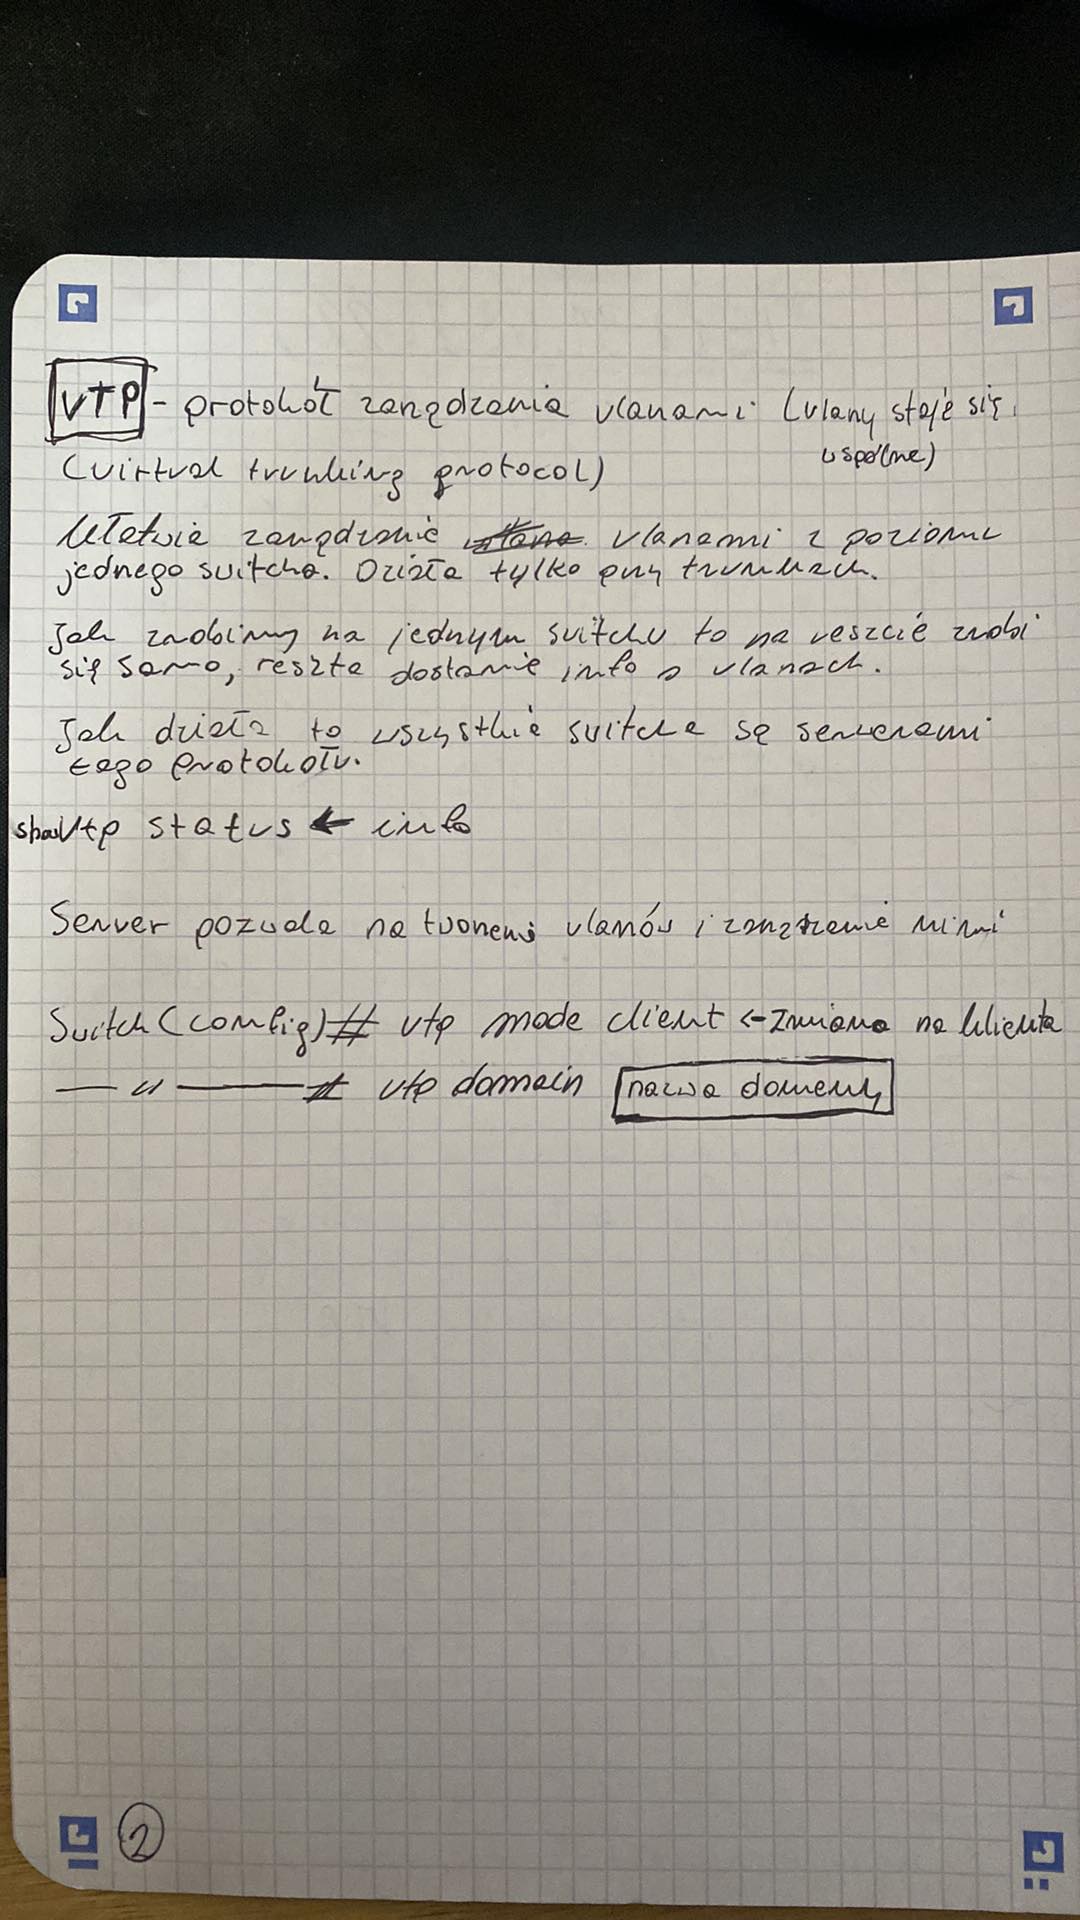 VTP - protokół zarządzania vlanami (vlany staję się
wspólne)
(virtual trunking protocol)
Ułatwia zarządzanie vlanami z poziomu
jednego switcha. Działa tylko przy trunkach.
Jak zrobimy na jednym switchu to na reszcie zrobi
się samo, reszta dostanie info o vlanach.
Jak działa to wszystkie switche są serwerami
tego protokołu.
show vtp status ← info
Server pozwala na tworzenie vlanów i zarządzanie nimi
Switch(config)# vtp mode client ← zmiana na klienta
— 〃 —# vtp domain nazwa domeny
2